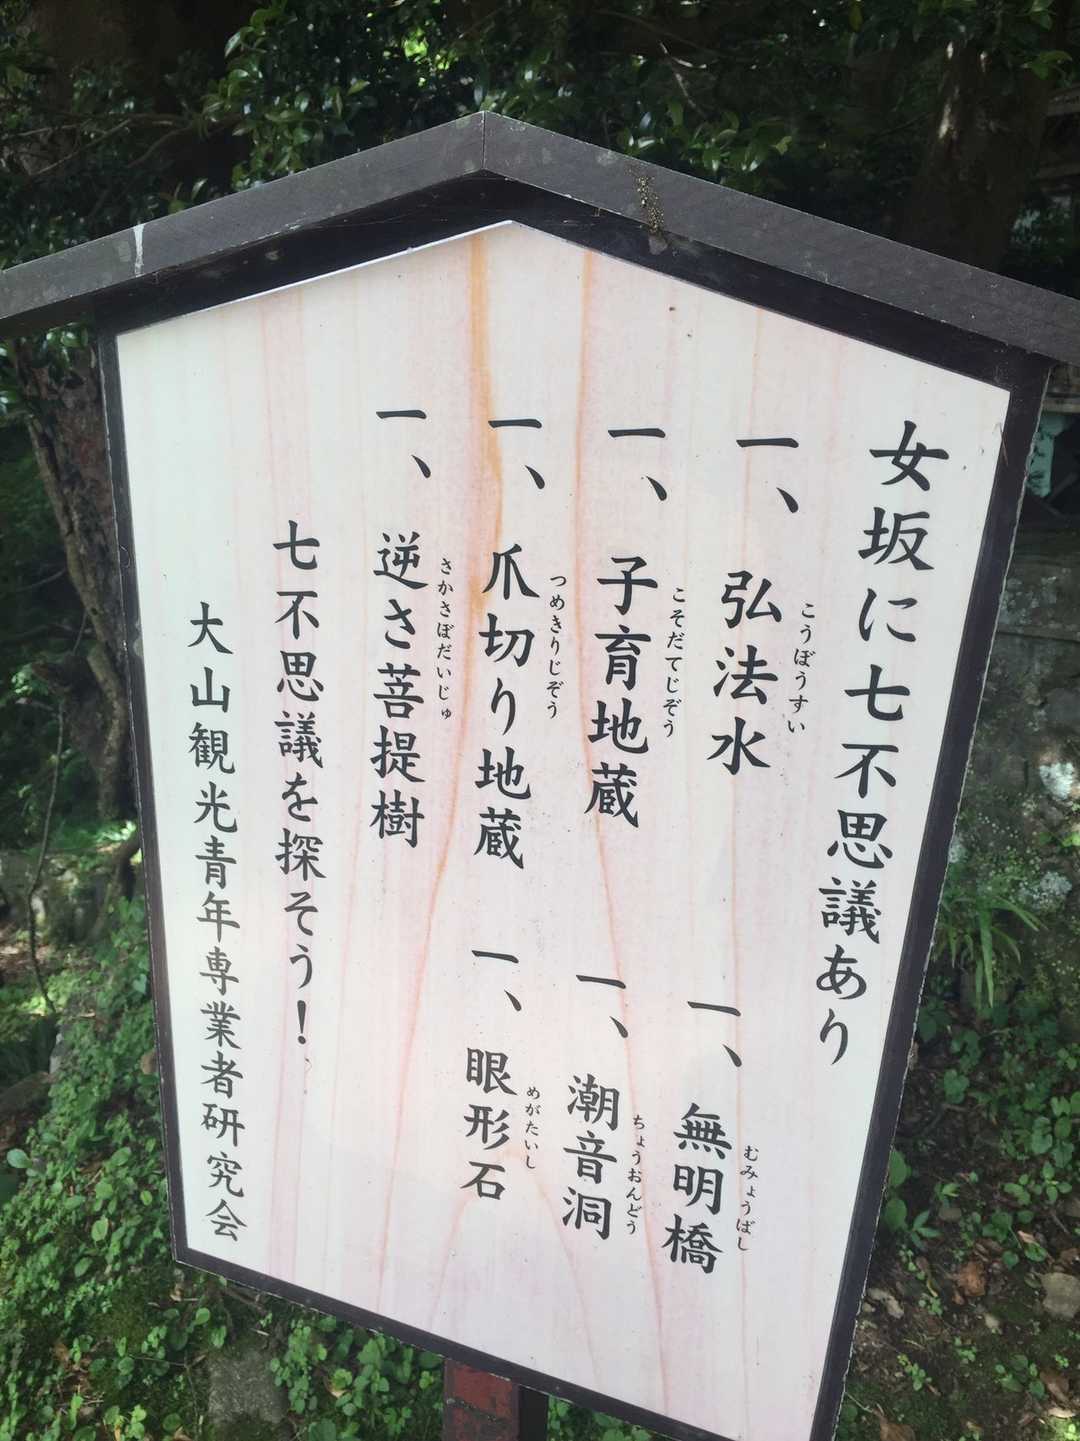 女坂に七不思議あり
一、弘法水
こうぼうすい
一、子育地蔵
こそだてじぞう
一、爪切り地蔵
つめきりじぞう
一、逆さ菩提樹
さかさぼだいじゅ
一、無明橋
むみょうばし
一、潮音洞
ちょうおんどう
一、眼形石
めがたいし
七不思議を探そう！
大山観光青年専業者研究会